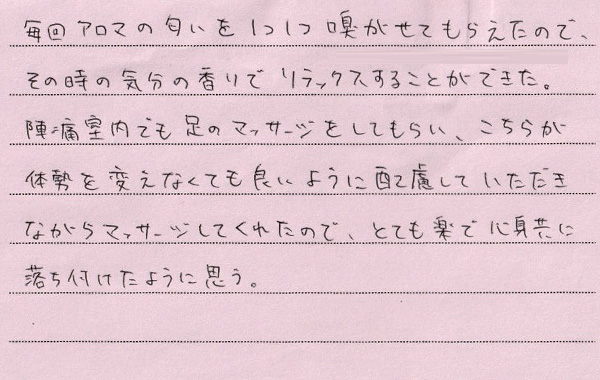 毎回アロマの匂いを1つ1つ嗅がせてもらえたので、
その時の気分の香りでリラックスすることができた。
陣痛室内でも足のマッサージをしてもらい、こちらが
体勢を変えなくても良いように配慮していただき
ながらマッサージしてくれたので、とても楽で心身共に
落ち付けたように思う。